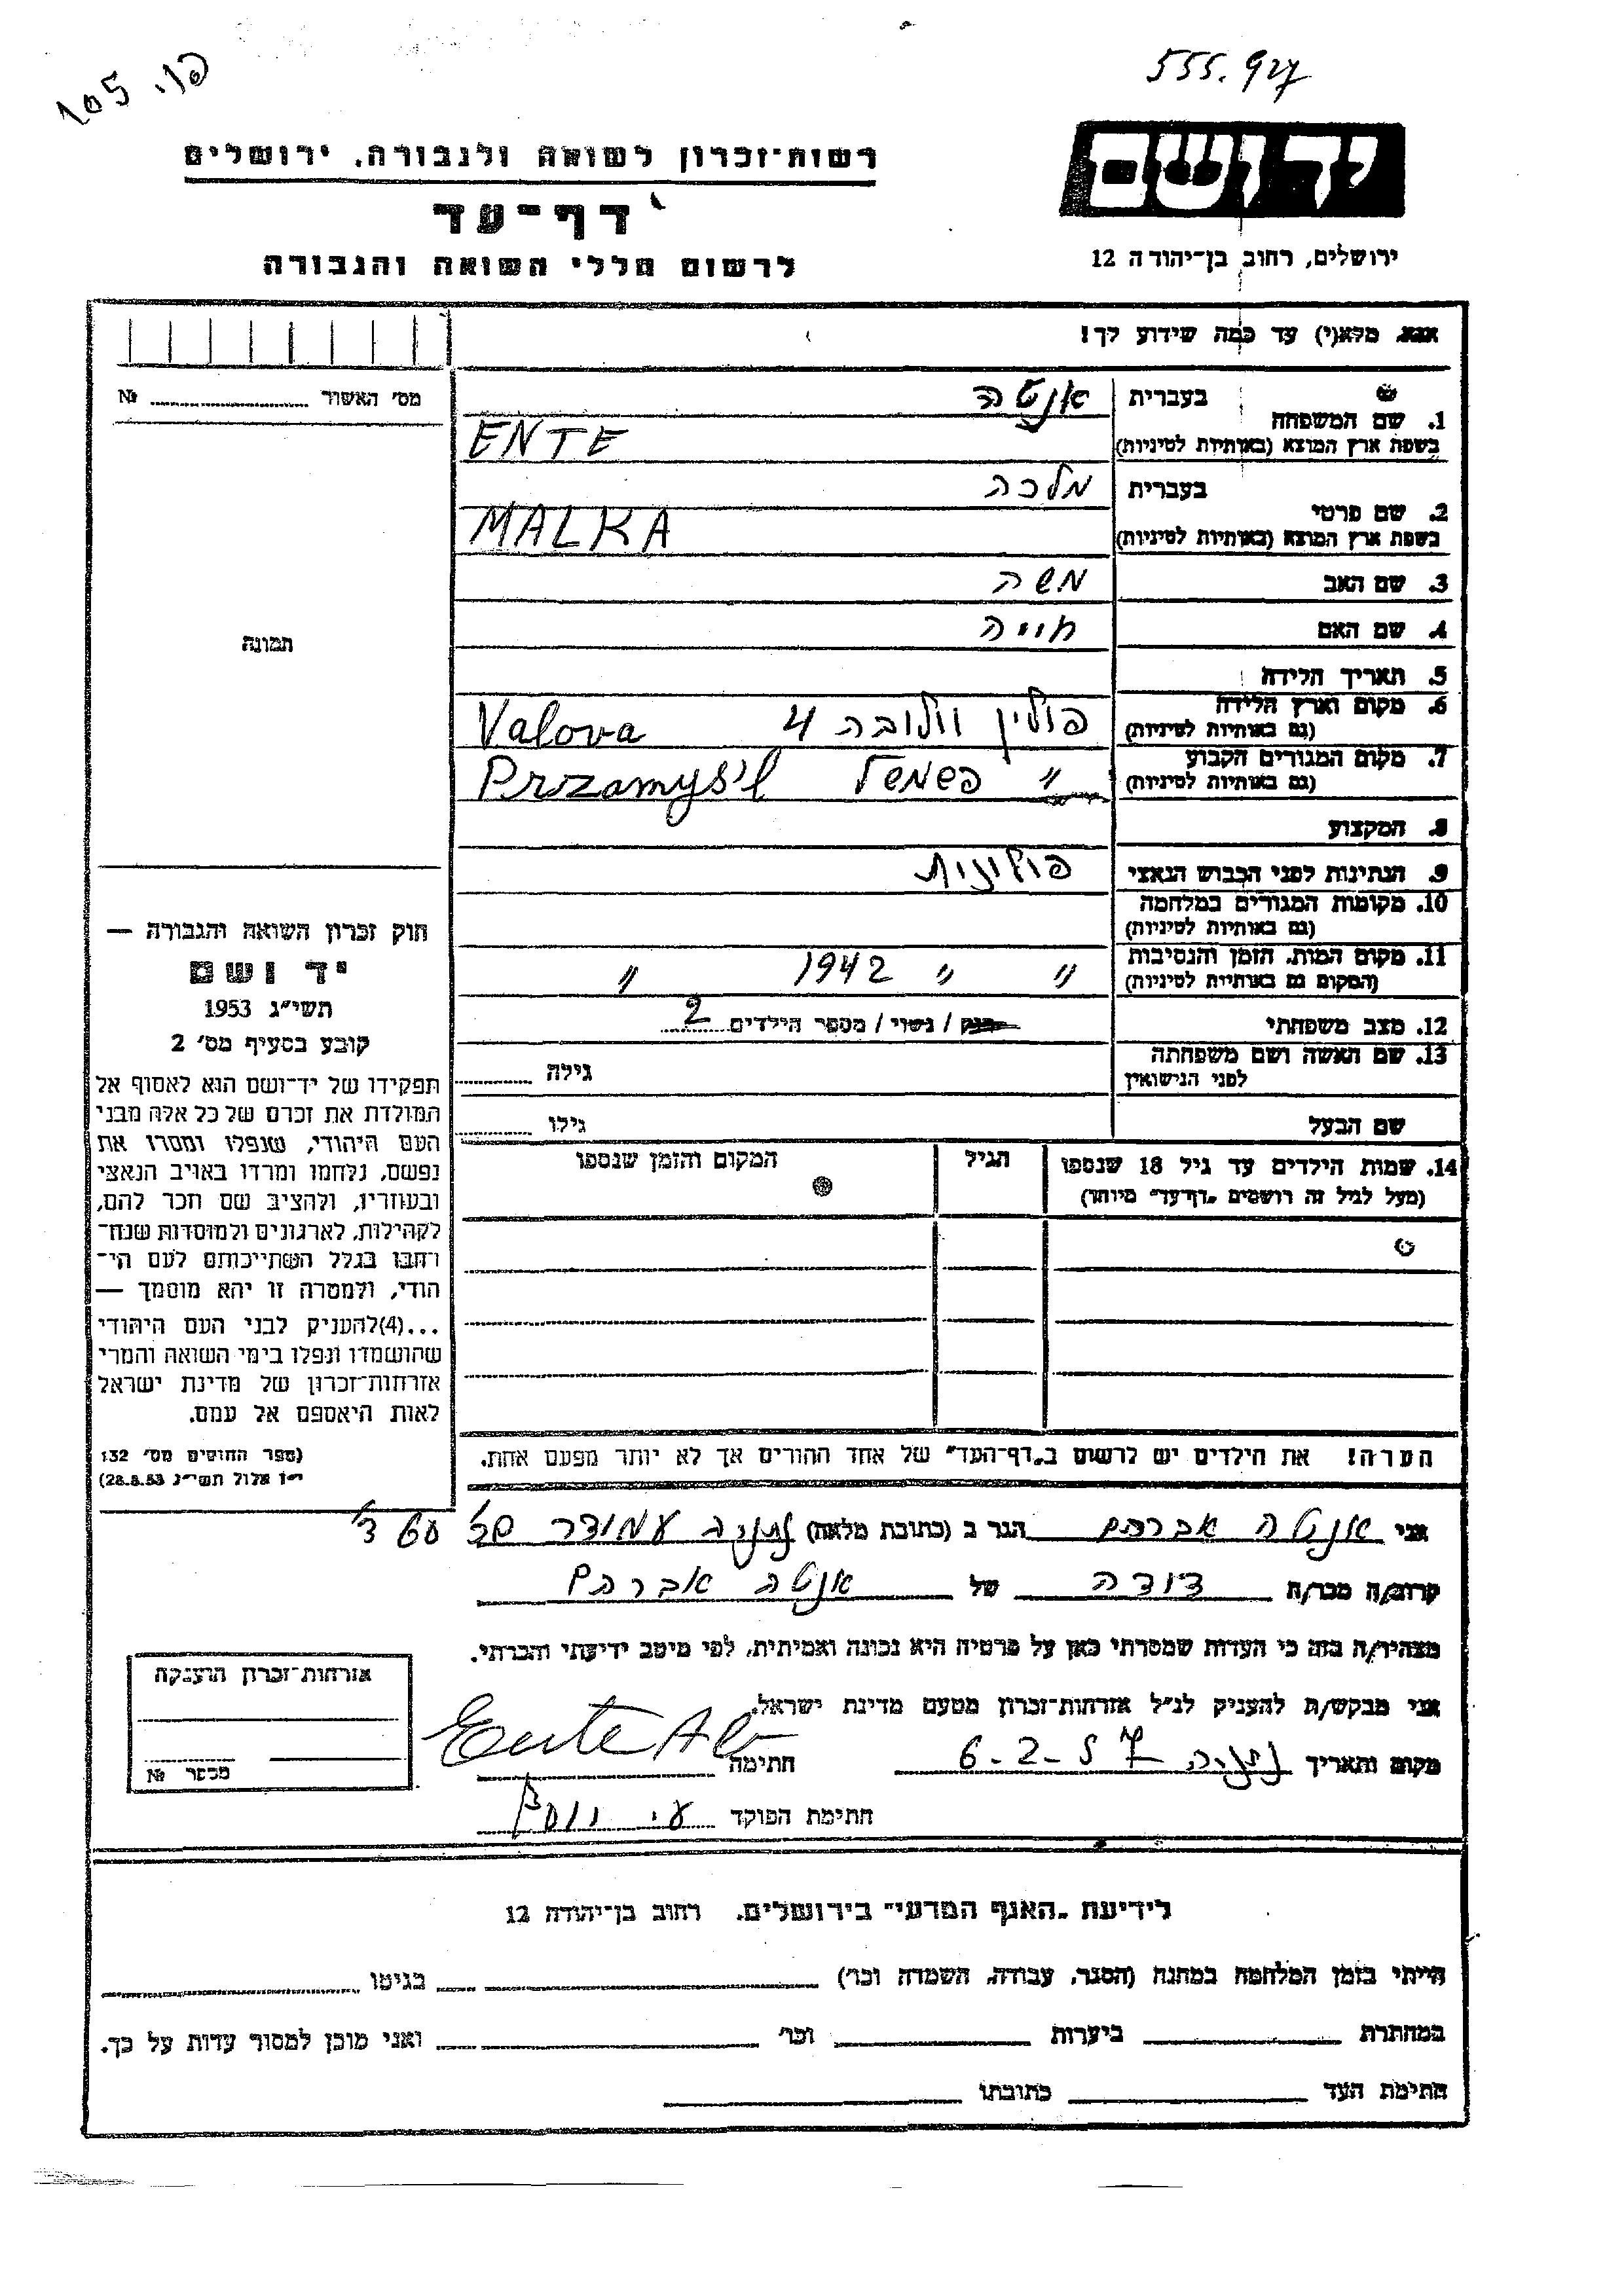 555.927
105
ידושם
רשות־זכרון לשואה ולגבורה, ירושלים
דף־עד
לרשום חללי השואה והגבורה
ירושלים, רחוב בן־יהודה 12
אנא, מלא(י) עד כמה שידוע לך!
מס׳ האשור № 
1. שם המשפחה
בעברית אנטה
בשפת ארץ המוצא (באותיות לטיניות) ENTE
2. שם פרטי
בעברית מלכה
בשפת ארץ המוצא (באותיות לטיניות) MALKA
3. שם האב משה
4. שם האם חוייה
5. תאריך הלידה
6. מקום וארץ הלידה פולין וולובה 4 Valova
(גם באותיות לטיניות)
7. מקום המגורים הקבוע " פשמשל Przamyśil
(גם באותיות לטיניות)
8. המקצוע
9. הנתינות לפני הכבוש הנאצי פולנית
10. מקומות המגורים במלחמה
(גם באותיות לטיניות)
11. מקום המות, הזמן והנסיבות " " 1942 "
(המקום גם באותיות לטיניות)
12. מצב משפחתי רווק / נשוי / מספר הילדים 2
13. שם האשה ושם משפחתה גילה
לפני הנישואין
שם הבעל גילו
14. שמות הילדים עד גיל 18 שנספו הגיל המקום והזמן שנספו
(מעל לגיל זה רושמים „דף־עד” מיוחד)
הערה! את הילדים יש לרשום ב„דף־העד” של אחד ההורים אך לא יותר מפעם אחת.
תמונה
חוק זכרון השואה והגבורה —
יד ושם
תשי״ג 1953
קובע בסעיף מס׳ 2
תפקידו של יד־ושם הוא לאסוף אל
המולדת את זכרם של כל אלה מבני
העם היהודי, שנפלו ומסרו את
נפשם, נלחמו ומרדו באויב הנאצי
ובעוזריו, ולהציב שם וזכר להם,
לקהילות, לארגונים ולמוסדות שנח־
רבו בגלל השתייכותם לעם הי־
הודי, ולמטרה זו יהא מוסמך —
...(4)להעניק לבני העם היהודי
שהושמדו ונפלו בימי השואה והמרי
אזרחות־זכרון של מדינת ישראל
לאות היאספם אל עמם.
(ספר החוקים מס׳ 132
י״ז אלול תשי״ג 28.8.53)
אני אנטה אברהם הגר ב (כתובת מלאה) נתניה עמידר
קרוב/ה מכר/ה דודה של אנטה אברהם
מצהיר/ה בזה כי העדות שמסרתי כאן על פרטיה היא נכונה ואמיתית, לפי מיטב ידיעתי והכרתי.
אני מבקש/ת להעניק לנ״ל אזרחות־זכרון מטעם מדינת ישראל.
מקום ותאריך נתניה 6-2-57 חתימה Ente Ab
חתימת הפוקד
אזרחות־זכרון הוענקה
מספר №
לידיעת „האגף המדעי” בירושלים, רחוב בן־יהודה 12
הייתי בזמן המלחמה במחנה (הסגר, עבודה, השמדה וכו׳) בגיטו
במחתרת ביערות וכו׳ ואני מוכן למסור עדות על כך.
חתימת העד כתובתו